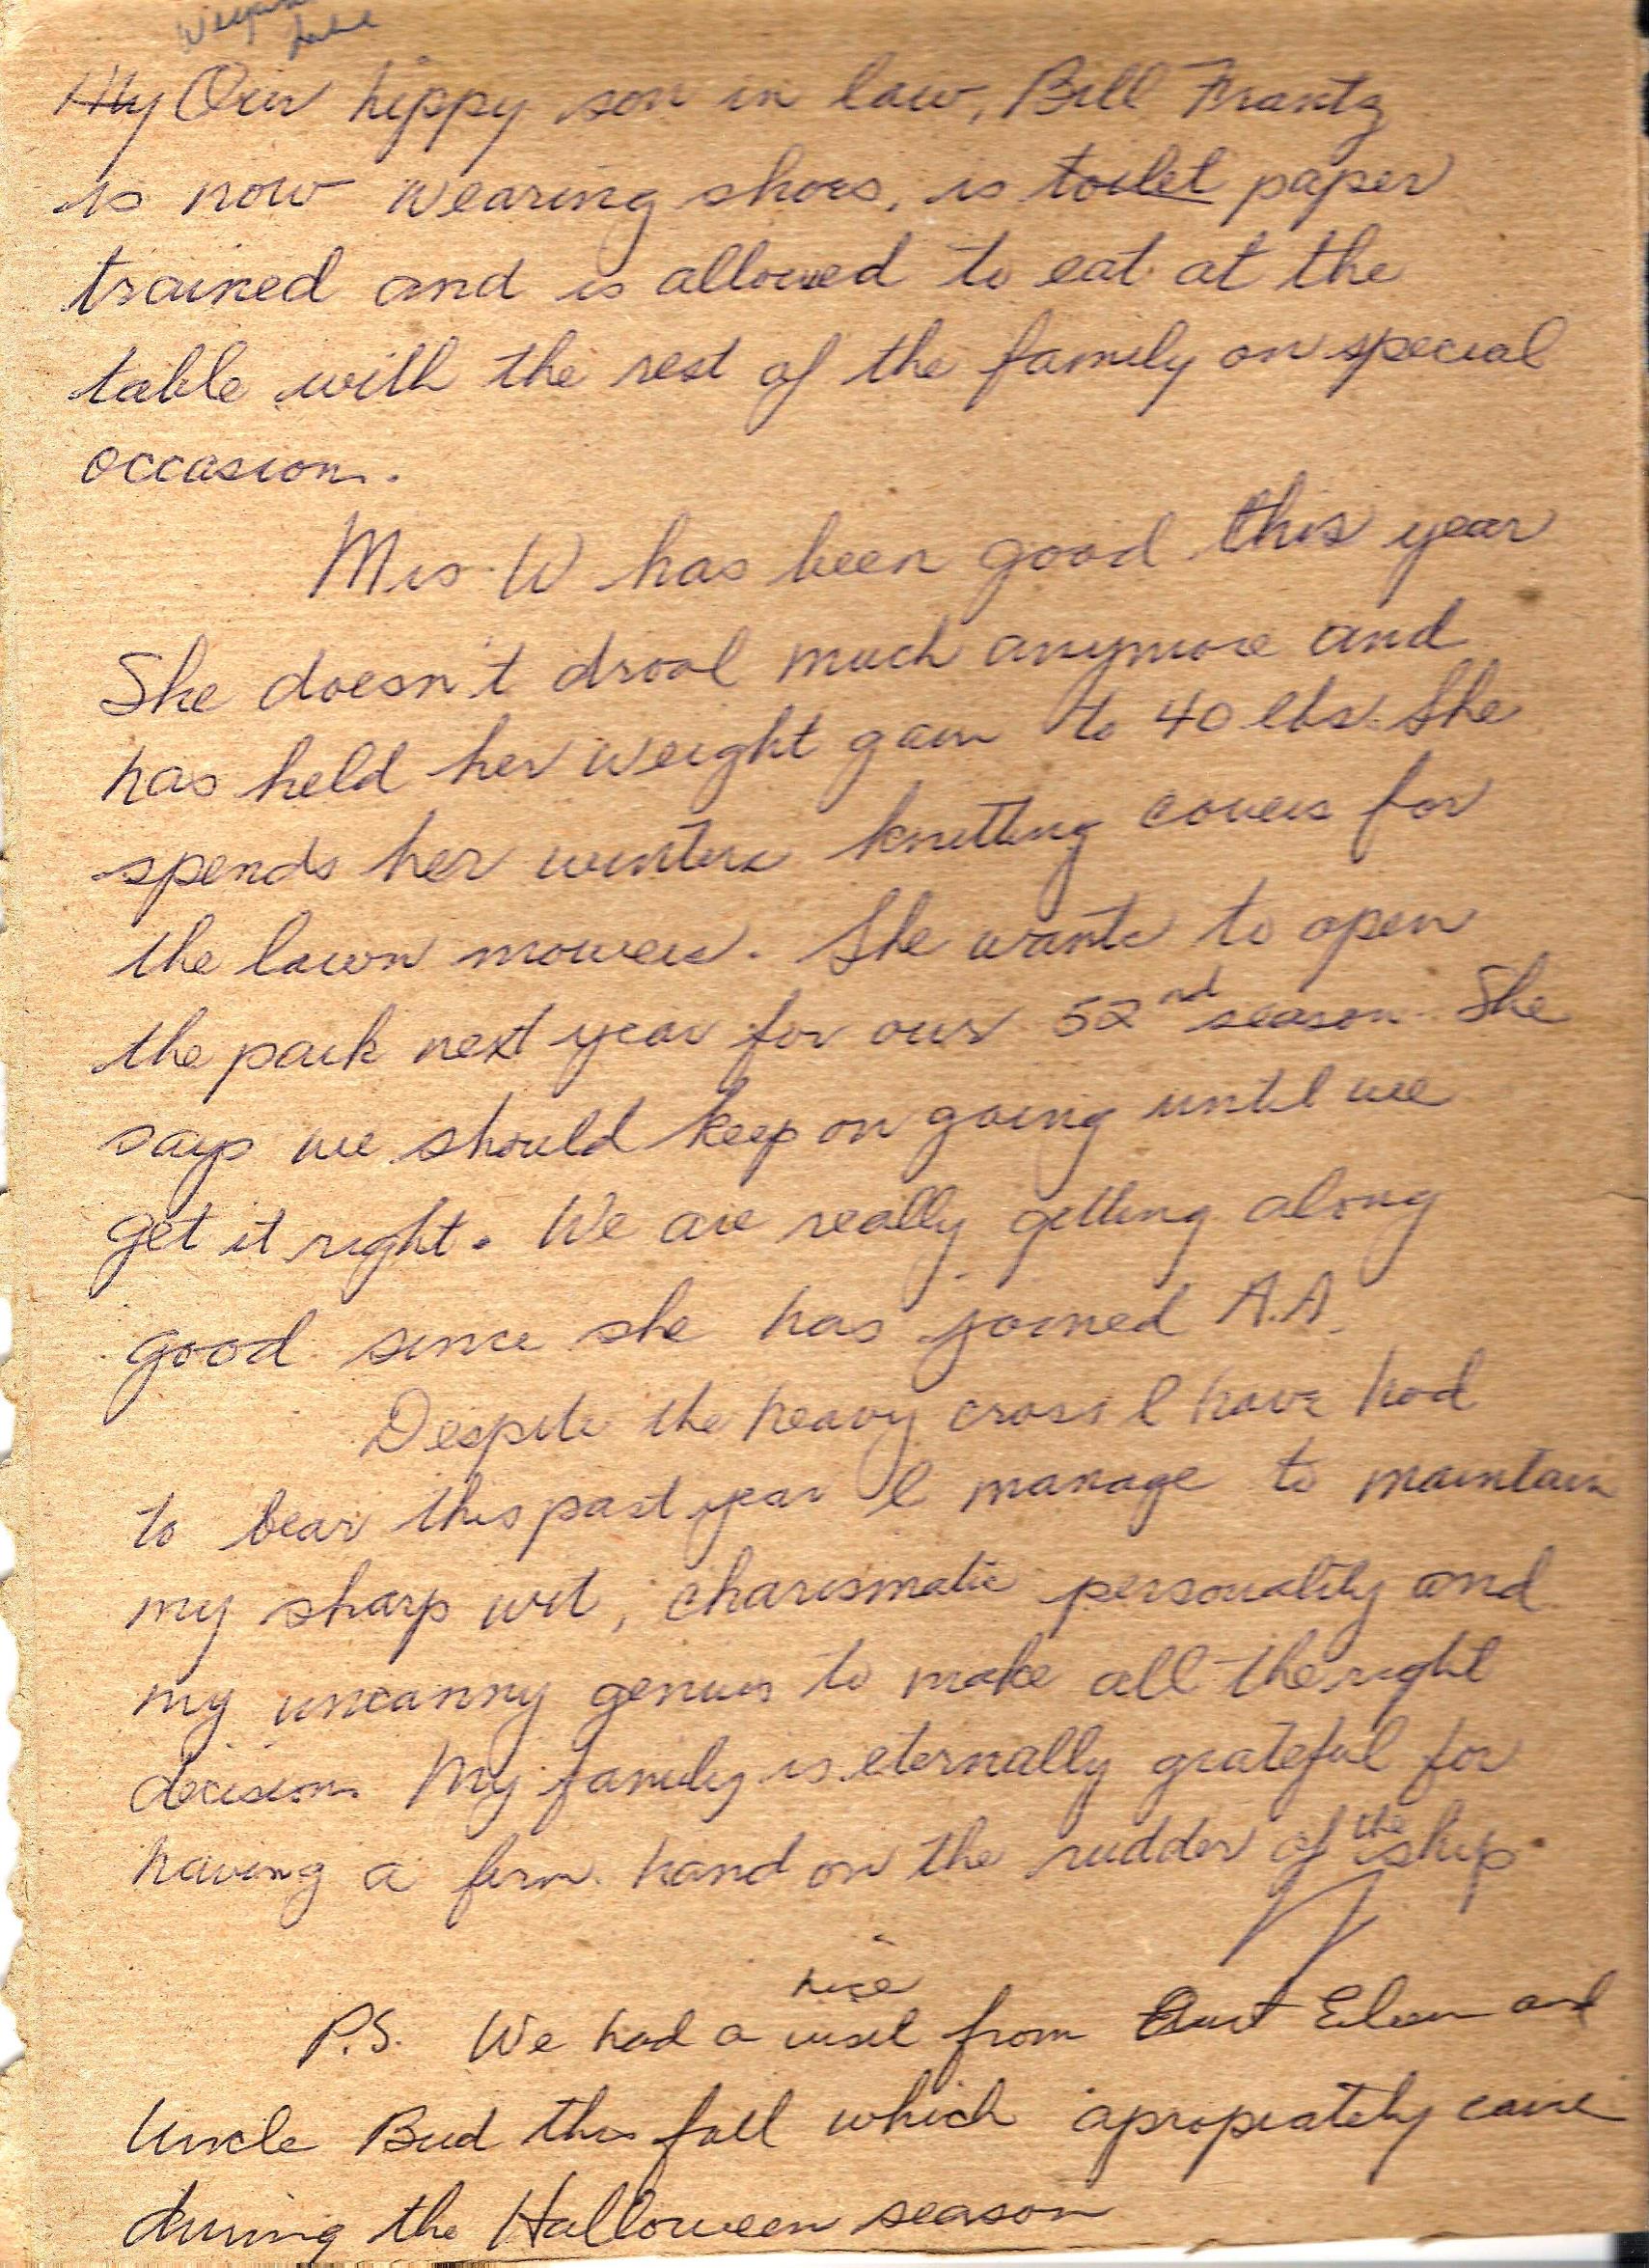 My Our hippy son in law, Bill Frantz
is now wearing shoes, is toilet paper
trained and is allowed to eat at the
table with the rest of the family on special
occasion.
Mrs. W has been good this year
She doesn't drool much anymore and
has held her weight gain to 40 lbs. She
spends her winters knitting covers for
the lawn mowers. She wants to open
the park next year for our 52nd season. She
says we should keep on going until we
get it right. We are really getting along
good since she has joined A.A.
Despite the heavy cross I have had
to bear this past year I manage to maintain
my sharp wit, charismatic personality and
my uncanny genius to make all the right
decision. My family is eternally grateful for
having a firm hand on the rudder of the ship.
P.S. We had a nice visit from Aunt Eileen and
Uncle Bud this fall which apropiately came
during the Halloween season